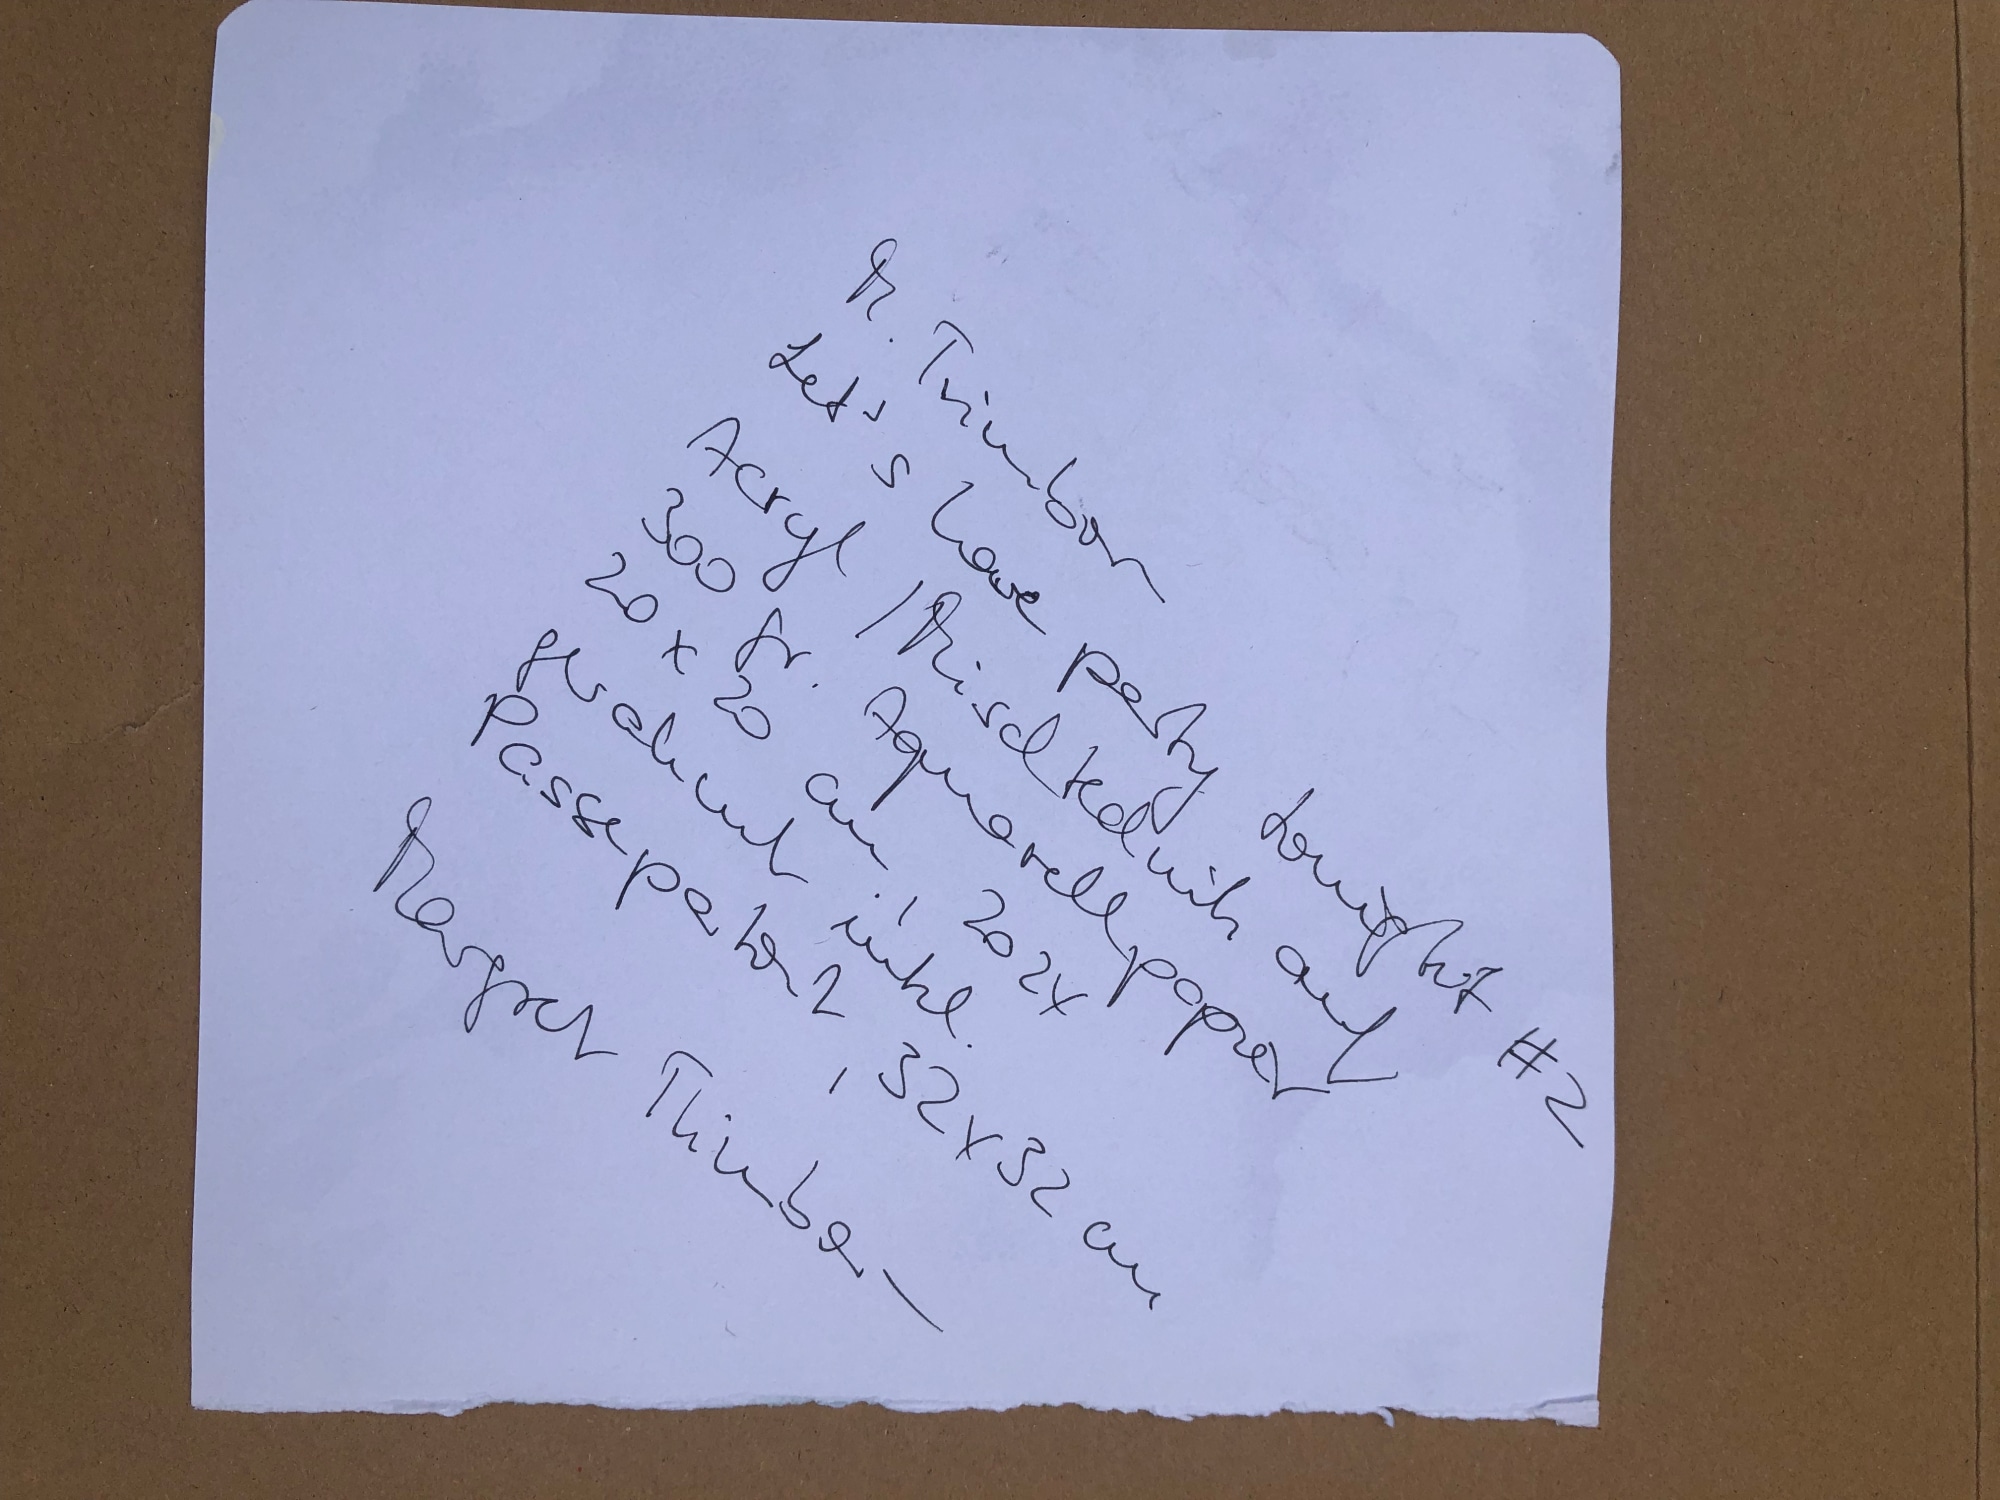 M. Thimban
Let's have party tonight #2
Acryl / Mischtechnik auf
300 gr. Aquarellpapier
20 x 20 cm, 2024
gerahmt inkl.
Passepartout, 32x32 cm
Margret